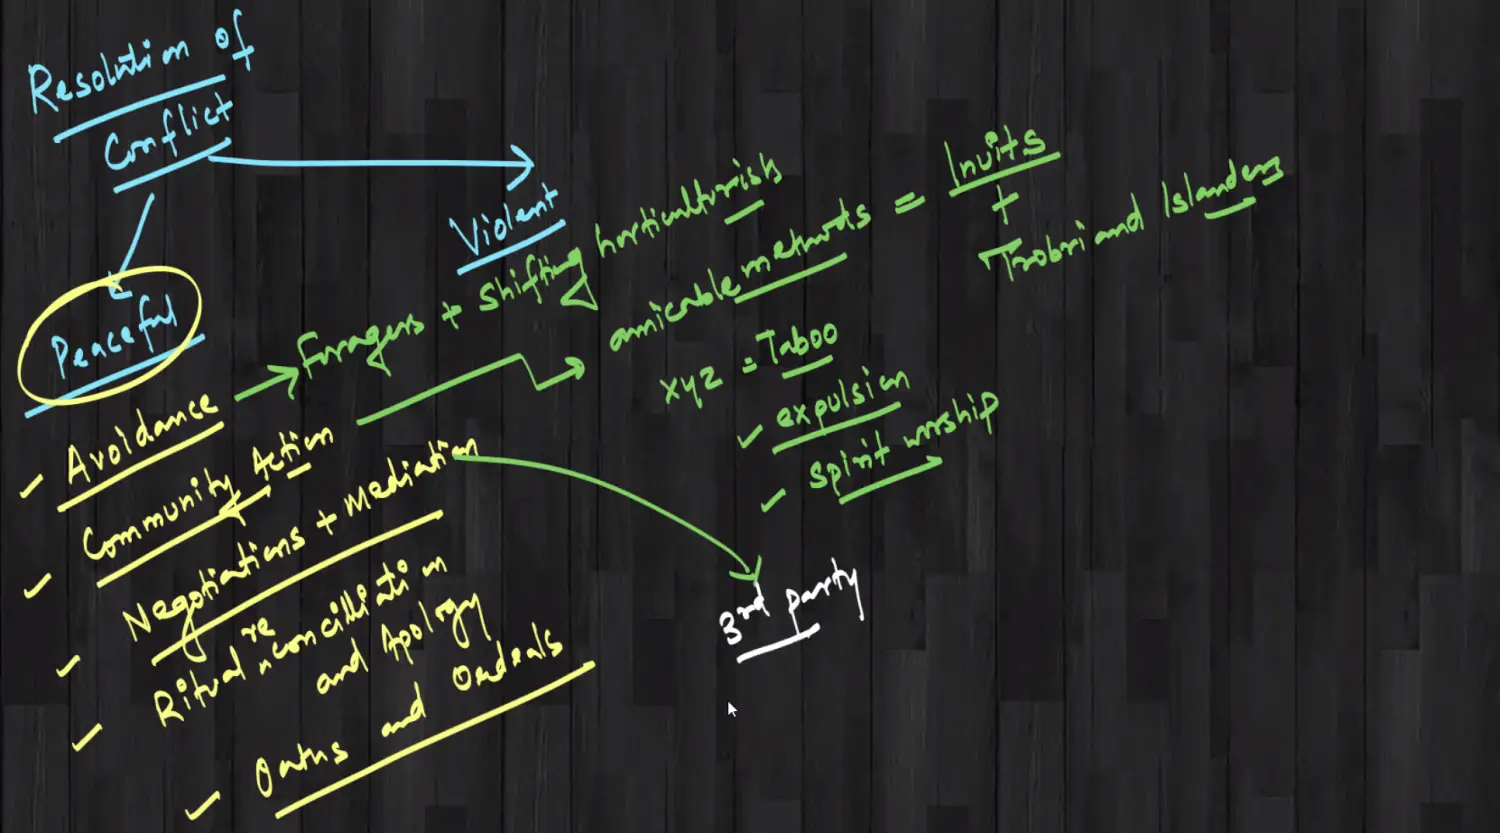 Resolution of
Conflict
Violent
Peaceful
Avoidance
Foragers + Shifting horticulturish
Community Action
amicable methods = Inuits
+
Trobriand Islanders
xyz = Taboo
expulsion
spirit worship
Negotiations + Mediation
3rd party
Ritual reconcilliation
and Apology
Oaths and Ordeals